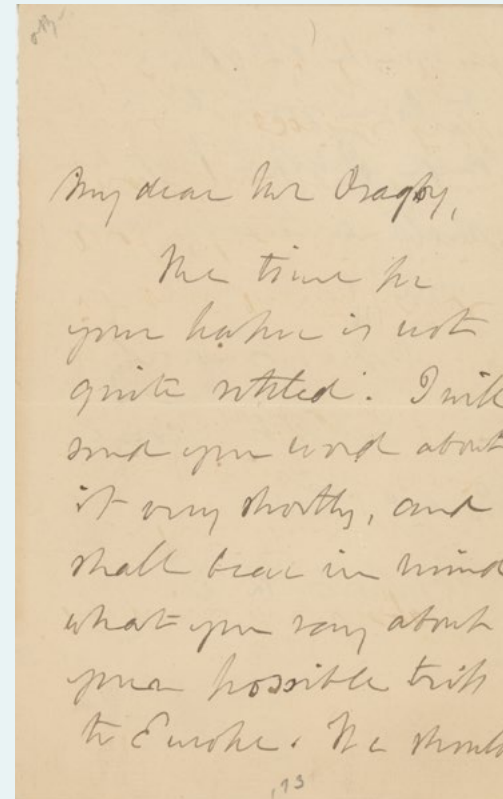 My dear Mr
The time for
your paper is not
quite settled. I will
send you word about
it very shortly, and
shall bear in mind
what you say about
your possible trip
to Europe. We should
,93